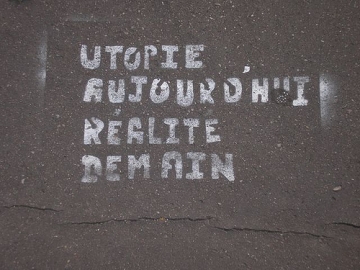 UTOPIE
AUJOURD'HUI
RÉALITE
DEMAIN